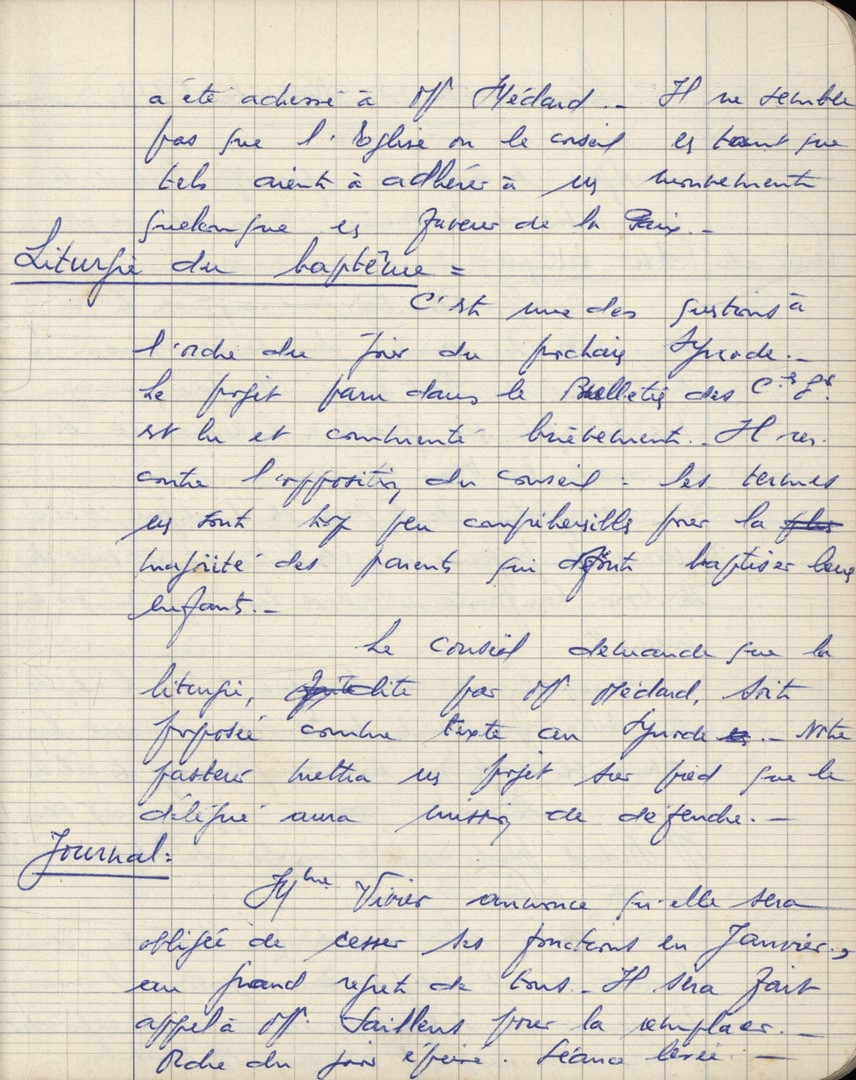 a été adressé à M Médard.. Il ne semble
pas que l'Eglise ou le conseil en tant que
tels aient à adhérer à un mouvement
quelconque en faveur de la Paix.-
Liturgie du baptême =
C'est une des questions à
l'ordre du jour du prochain Synode.-
Le projet paru dans le Bulletin des C.
est lu et commenté brièvement.. Il ren-
contre l'opposition du conseil : les termes
en sont trop peu compréhensibles pour la
majorité des parents qui font baptiser leurs
enfants.-
Le conseil demande que la
liturgie, dite par M Médard, soit
proposée comme texte au Synode .- Notre
pasteur mettra un projet sur pied que le
délégué aura mission de défendre.-
Journal:
Mme Vivier annonce qu'elle sera
obligée de cesser ses fonctions en Janvier.,
au grand regret de tous.. Il sera fait
appel à M. Saillens pour la remplacer.-
Ordre du jour épuisé. Séance levée.-